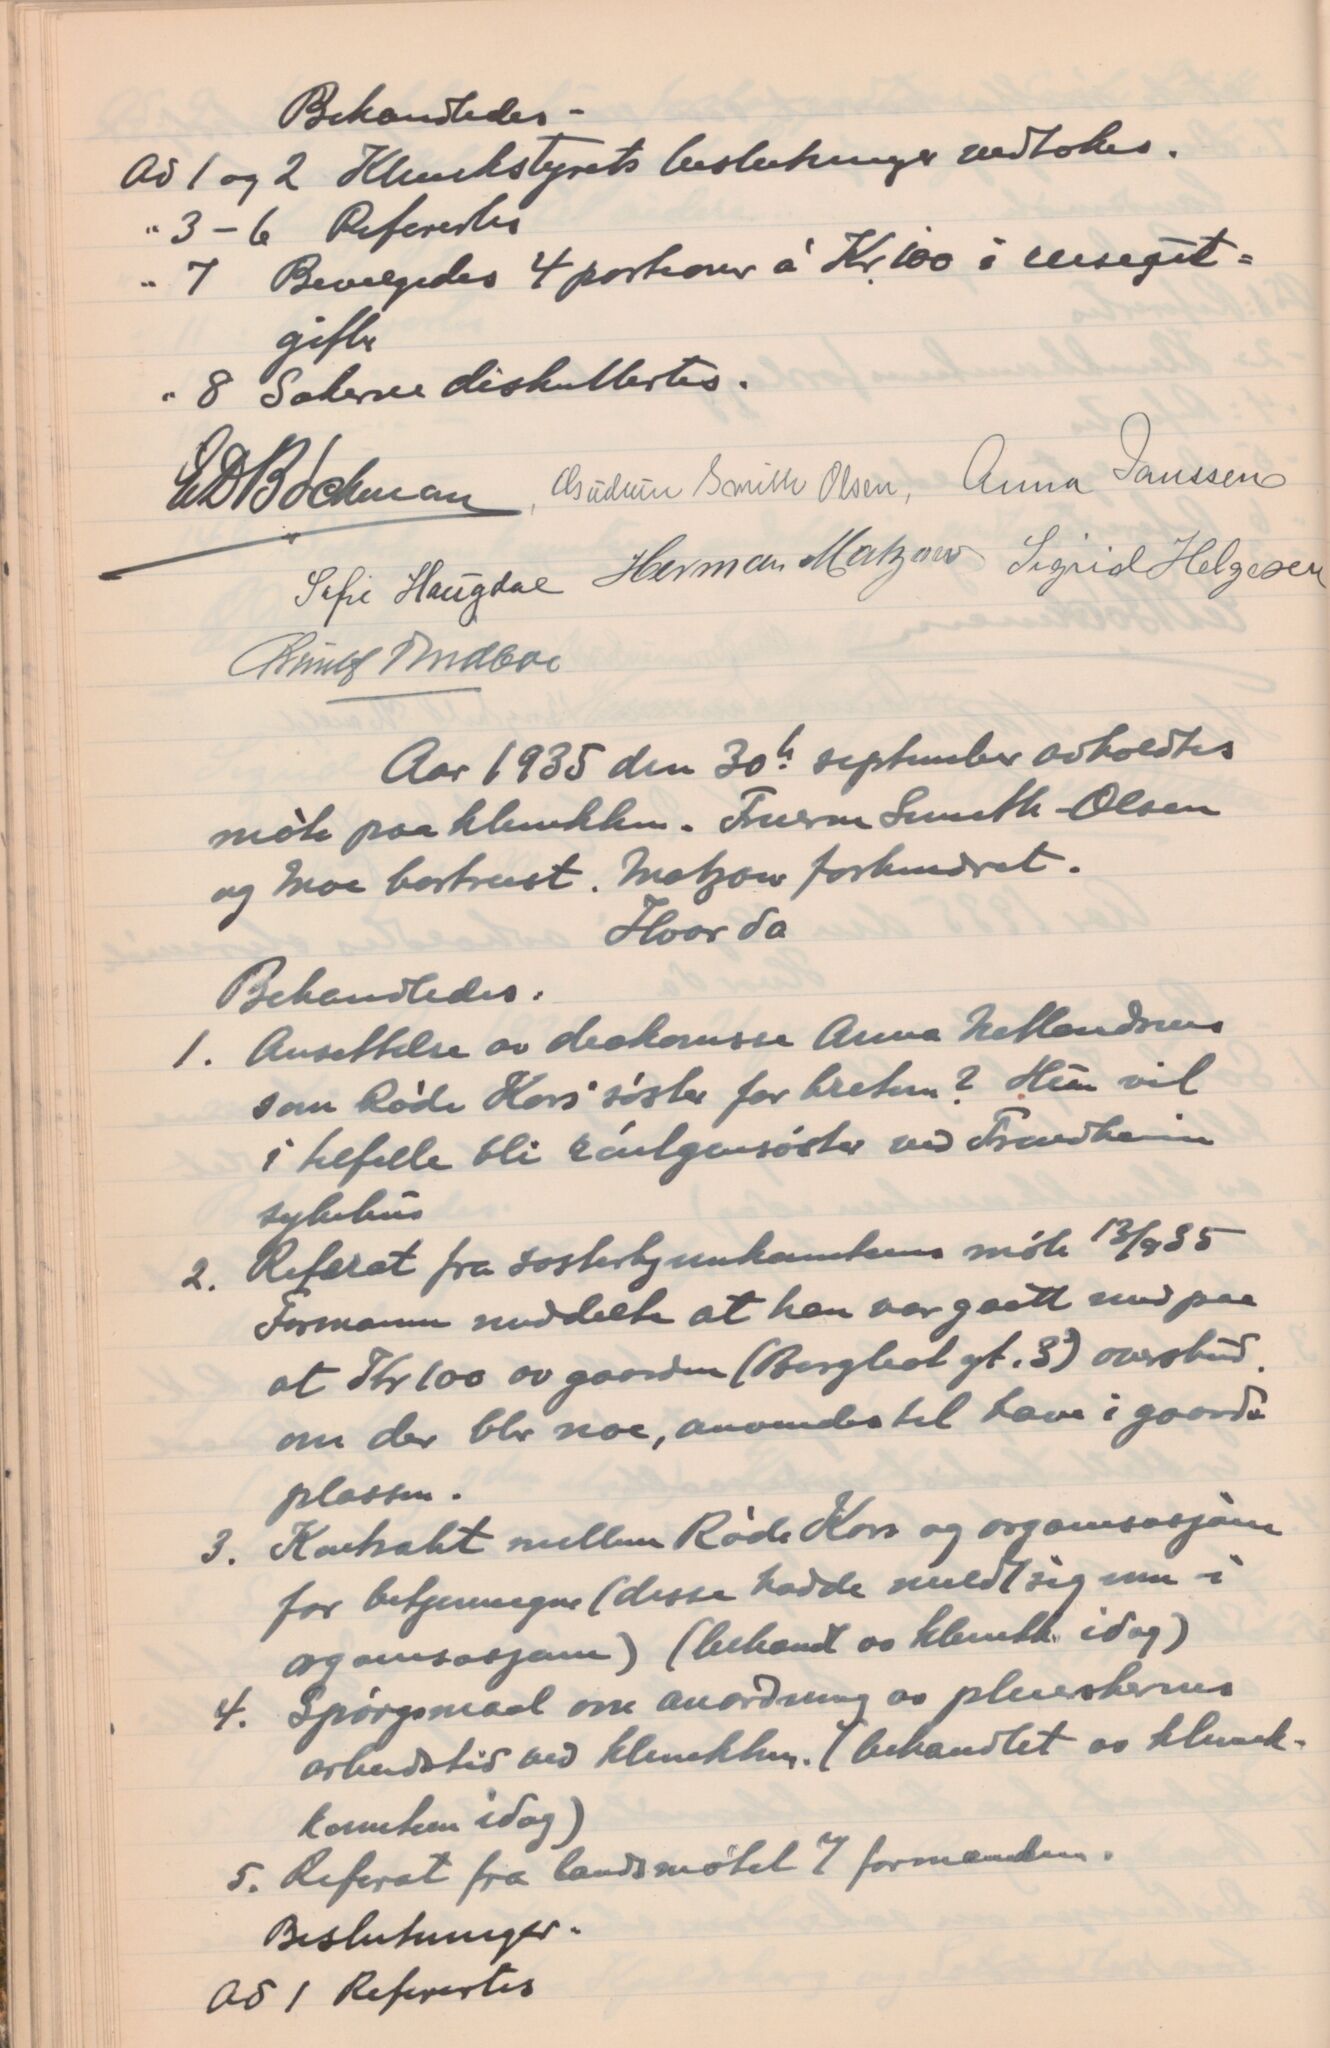 Behandledes -
Ad 1 og 2 Klinikstyrets beslutninger vedtokes.
" 3 - 6 Refertes
" 7 Bevilgedes 4 portioner á Kr. 100 i
gifter
" 8 Sakerne diskuttertes.
ED Bóckman, Gudrun Smith Olsen, Anna Janssen
Sofie Haugdal Herman Matzow Sigrid Helgesen
Aar 1935 den 30t september avholdtes
móte paa klinikken. Fruerne Smith-Olsen
og Moe bortreist. Matzow forhindret.
Hvor da
Behandledes.
1. Ansettelse av diakonisse Anna
som Róde Kors' sóster for kretsen? Hun vil
i tilfelle bli róntgensóster ved Trondheim
sykehus
2. Referat fra sósterhjemkomiteens móte 13/9 35
Formann meddelte at han var gaatt med paa
at Kr 100 av gaarden (Bergljot gt. 3) overskud.
om der blir noe, anvendes til have i gaards
plassen.
3. Kontrakt mellem Róde Kors og organisasjónen
for betjeningen (disse hadde meldt sig inn i
organisasjonen) (behandl. av klinikk. idag)
4. Spórgsmaal om anordning av pleierskernes
arbeidstid ved klinikken. (behandlet av klinik-
komiteen idag)
5. Referat fra landsmótet v/ formanden.
Beslutninger.
Ad 1 Refertes